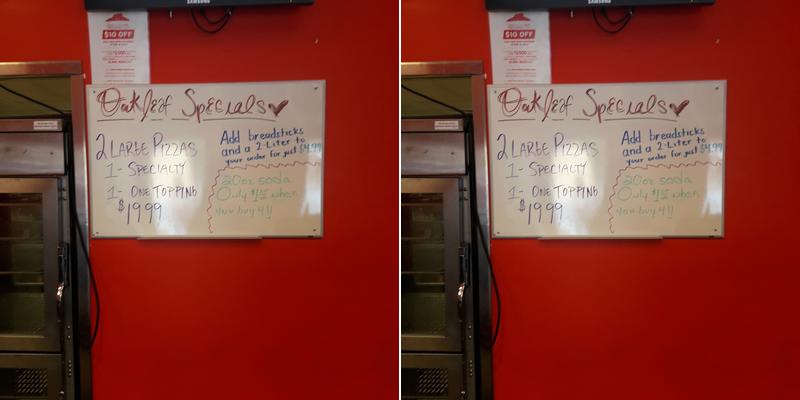 SAMSUNG
$10 OFF
Oakleaf Specials
2 LARGE PIZZAS
1- SPECIALTY
1- ONE TOPPING
$19.99
Add breadsticks
and a 2-Liter to
your order for just $4.99
20oz soda
Only $1.25 when
you buy 4!!
SAMSUNG
$10 OFF
Oakleaf Specials
2 LARGE PIZZAS
1- SPECIALTY
1- ONE TOPPING
$19.99
Add breadsticks
and a 2-Liter to
your order for just $4.99
20oz soda
Only when
you buy 4!!